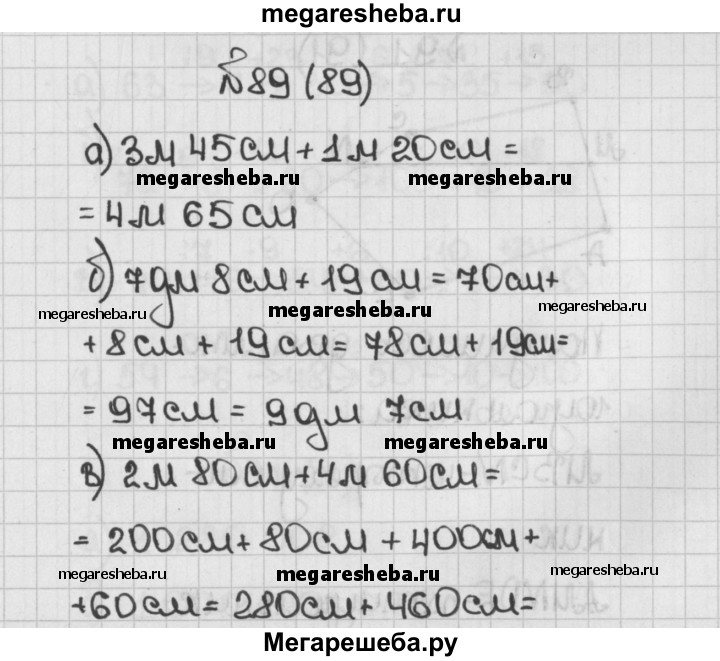 megaresheba.ru
№89 (89)
а) 3м 45см + 1м 20см =
megaresheba.ru megaresheba.ru
= 4м 65см
б) 7дм 8см + 19см = 70см +
megaresheba.ru megaresheba.ru megaresheba.ru
+ 8см + 19см = 78см + 19см =
= 97см = 9дм 7см
megaresheba.ru megaresheba.ru
в) 2м 80см + 4м 60см =
= 200см + 80см + 400см +
megaresheba.ru megaresheba.ru megaresheba.ru
+ 60см = 280см + 460см =
Мегарешеба.ру